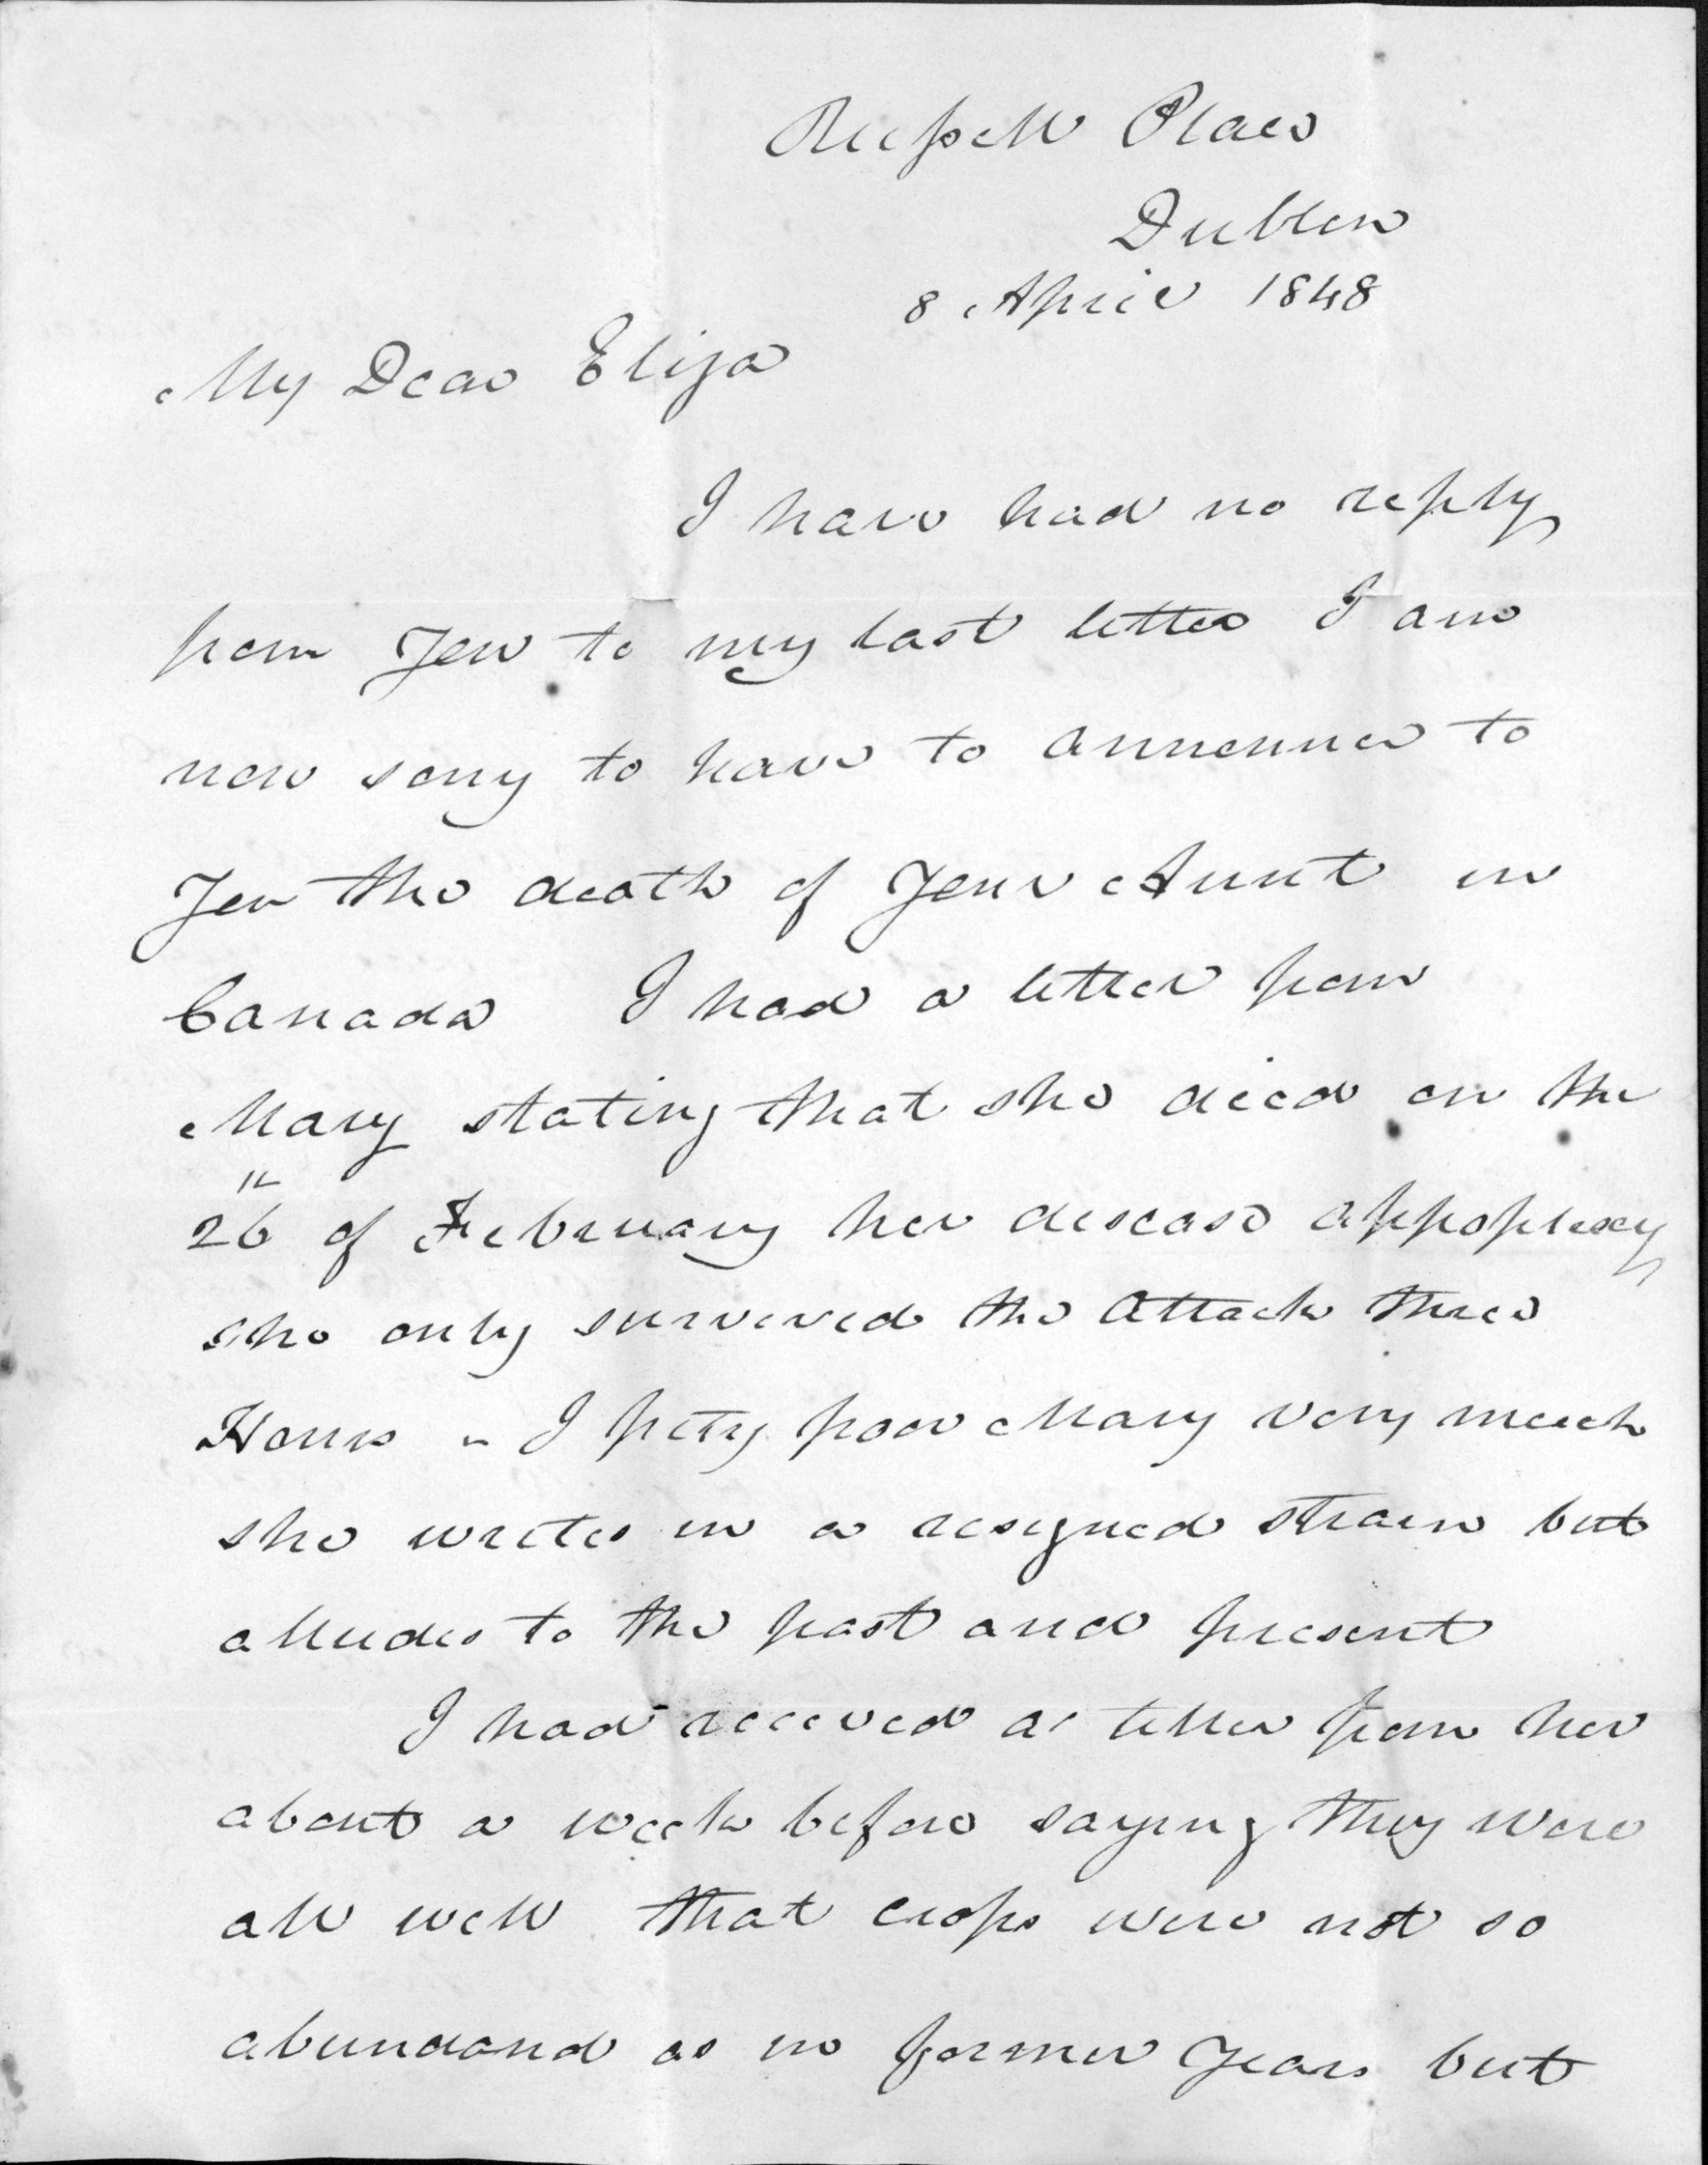 Russell Place
Dublin
8 April 1848
My Dear Eliza
I have had no reply
from You to my last letter I am
now sorry to have to announce to
You the death of Your Aunt in
Canada I had a letter from
Mary stating that she died on the
26th of February her disease appoplexy
she only survived the Attack three
Hours - I pity poor Mary very much
she writes in a resigned strain but
alludes to the past and present
I had received a letter from her
about a week before saying they were
all well that crops were not so
abundand as in former Years but